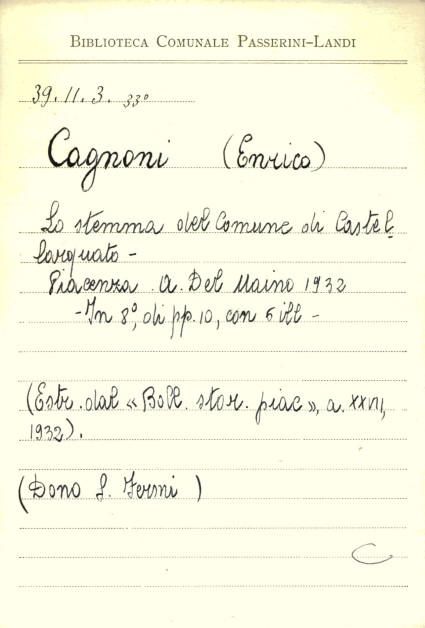 BIBLIOTECA COMUNALE PASSERINI-LANDI
39.11.3. 33°
Cagnoni (Enrico)
Lo stemma del Comune di Castel-
larquato -
Piacenza. A. Del Maino 1932
- In 8°, di pp. 10, con 6 ill -
(Estr. dal « Boll. stor. piac », a. XXVII,
1932).
(Dono S. Fermi )
C